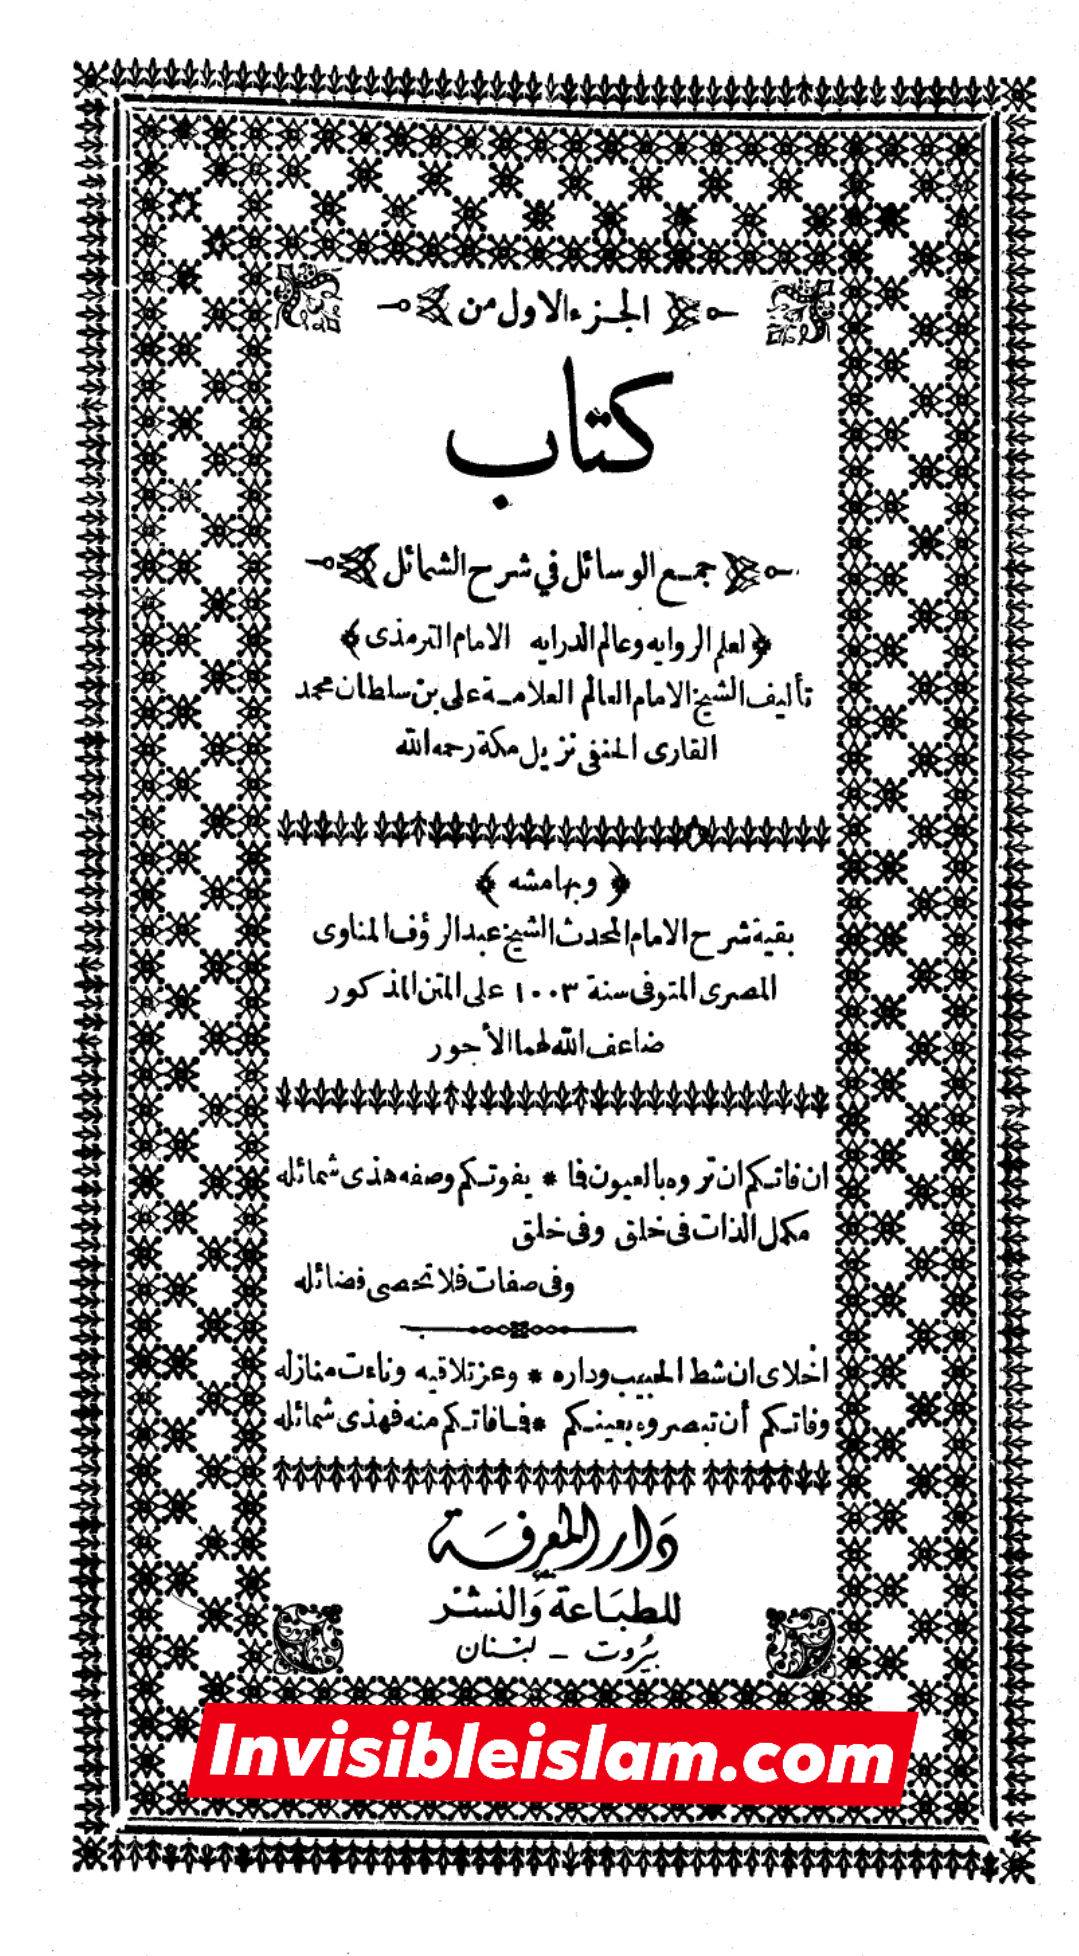 الجزء الاول من
كتاب
جمع الوسائل في شرح الشمائل
لعلم الروايه وعالم الدرايه الامام الترمذى
تأليف الشيخ الامام العالم العلامة على بن سلطان محمد
القارى الحنفى نزيل مكة رحمه الله
وبهامشه
بقية شرح الامام المحدث الشيخ عبد الرؤف المناوى
المصرى المتوفى سنة ١٠٠٣ على المتن المذكور
ضاعف الله لهما الأجور
ان فاتكم ان تروه بالعيون فما * يفوتكم وصفه هذى شمائله
مكمل الذات فى خلق وفى خلق
وفى صفات فلا تحصى فضائله
اخلاى ان شط الحبيب وداره * وعز تلاقيه وناءت منازله
وفاتكم أن تبصروه بعينكم * فمافاتكم منه فهذى شمائله
دَار المعرفَة
للطبَاعة وَالنشر
بيرُوت - لبْنان
Invisibleislam.com